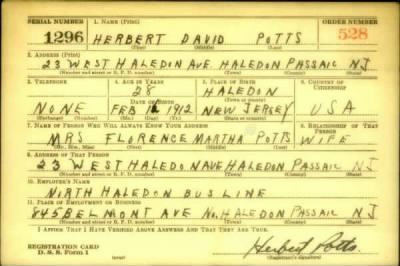 SERIAL NUMBER 1. NAME (Print) ORDER NUMBER
1296 HERBERT DAVID POTTS 528
(First) (Middle) (Last)
2. ADDRESS (Print)
23 WEST HALEDON AVE. HALEDON PASSAIC NJ
(Number and street or R. F. D. number) (Town) (County) (State)
3. TELEPHONE 4. AGE IN YEARS 5. PLACE OF BIRTH 6. COUNTRY OF CITIZENSHIP
28 HALEDON
DATE OF BIRTH (Town or county)
NONE FEB 16 1912 NEW JERSEY USA
7. NAME OF PERSON WHO WILL ALWAYS KNOW YOUR ADDRESS 8. RELATIONSHIP OF THAT PERSON
MRS FLORENCE MARTHA POTTS WIFE
(Mr., Mrs., Miss) (First) (Middle) (Last)
9. ADDRESS OF THAT PERSON
23 WEST HALEDON AVE HALEDON PASSAIC NJ
(Number and street or R. F. D. number) (Town) (County) (State)
10. EMPLOYER'S NAME
NORTH HALEDON BUS LINE
11. PLACE OF EMPLOYMENT OR BUSINESS
845 BELMONT AVE NO. HALEDON PASSAIC NJ
(Number and street or R. F. D. number) (Town) (County) (State)
I AFFIRM THAT I HAVE VERIFIED ABOVE ANSWERS AND THAT THEY ARE TRUE.
REGISTRATION CARD
D. S. S. Form 1
Herbert Potts